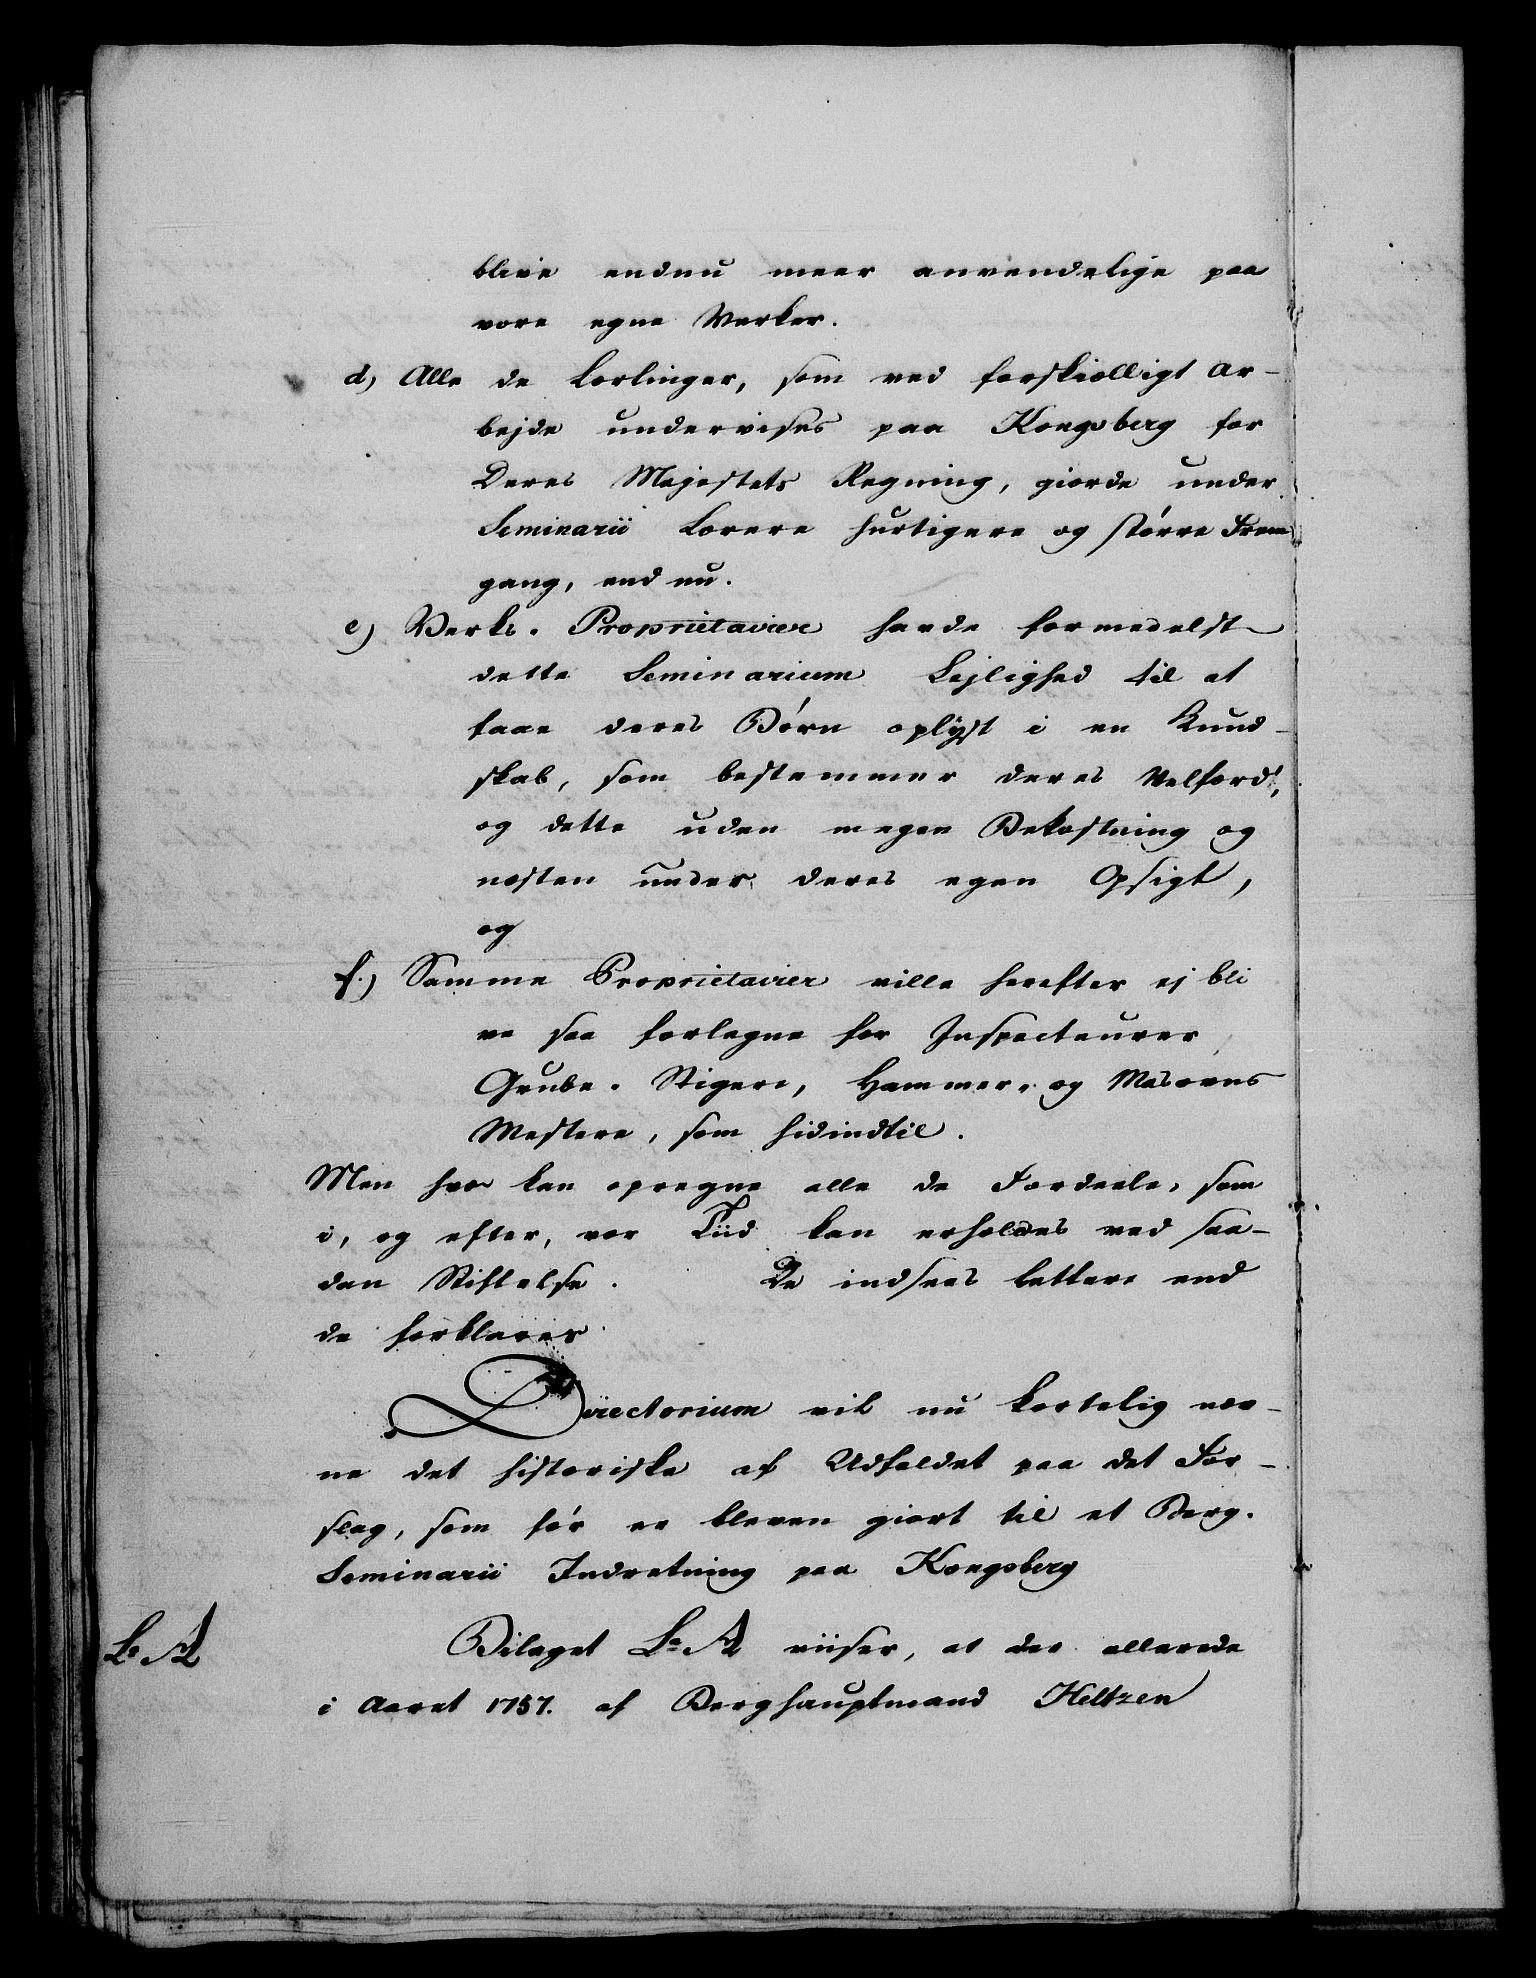 blive endnu meer anvendelige paa
vore egne Verker.
d) Alle de Lærlinger, som ved forskiælligt Ar-
bejde undervises paa Kongsberg for
Deres Majestets Regning, giorde under
Seminarii Lærere hurtigere og større Frem
gang, end nu.
e) Verks-Proprietairer havde formedelst
dette Seminarium Lejlighed til at
faae deres Børn oplyst i en Kund-
skab, som bestemmer deres Velfærd,
og dette uden megen Bekostning og
næsten under deres egen Opsigt,
og
f.) Samme Proprietairer ville herefter ej bli
ve saa forlegne for Inspecteurer,
Grube-Stigere, Hammer- og Masovns
Mestere, som hidindtil.
Men hvo kan opregne alle de Fordeele, som
i, og efter, vor Tiid kan erholdes ved saa-
dan Stiftelse. De indsees lettere end
de forklares.
Directorium vil nu kortelig næv-
ne det historiske af Udfaldet paa det For-
slag, som før er bleven giort til et Berg-
Seminarii Indretning paa Kongsberg
Lr A
Bilaget Lr A viiser, at der allerede
i Aaret 1757. af Berghauptmand Heltzen